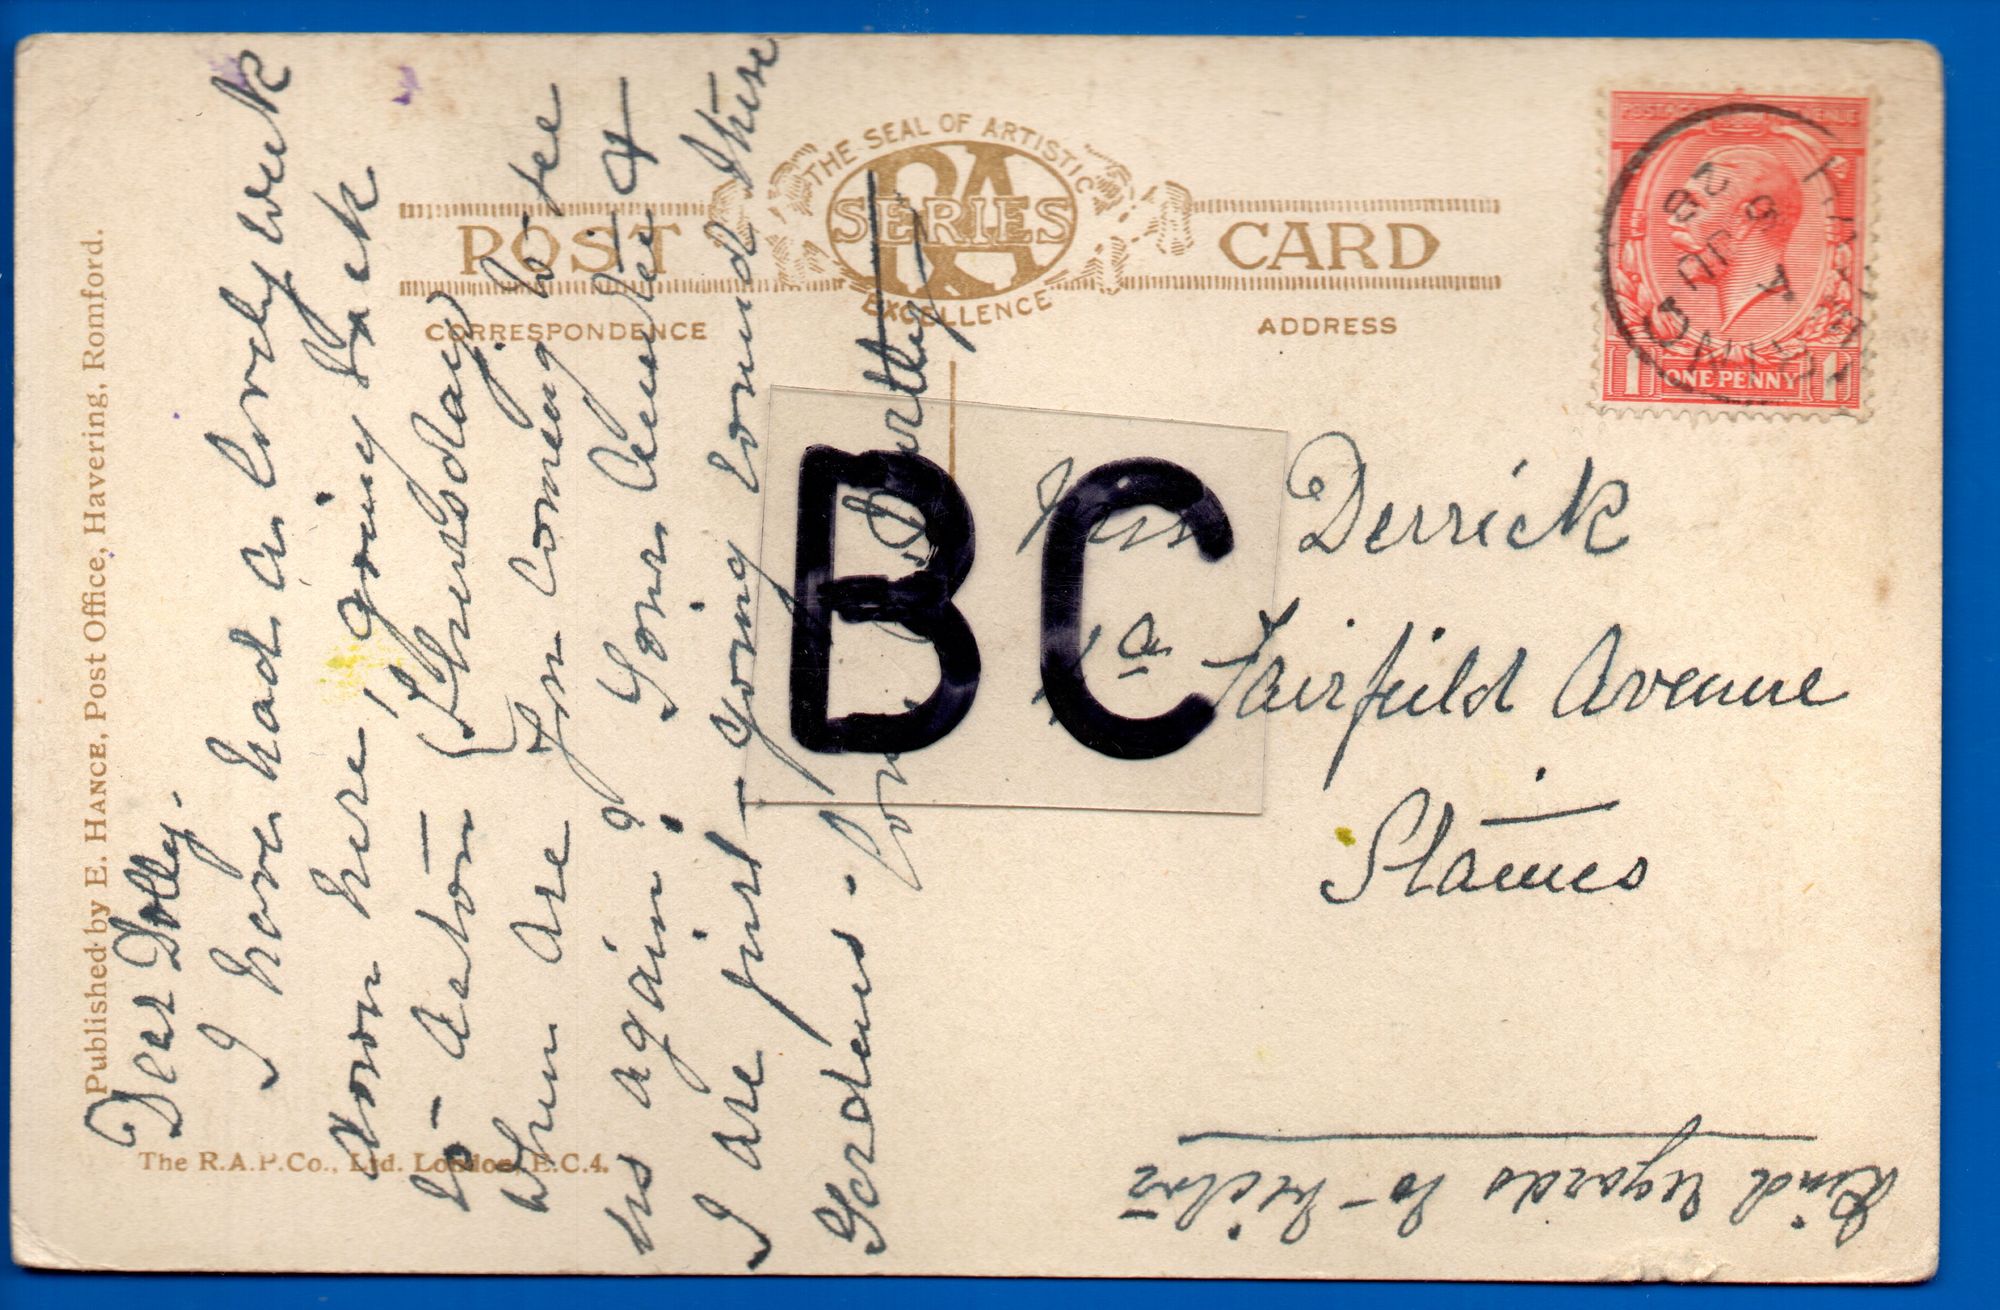 Published by E. HANCE, Post Office, Havering, Romford.
THE SEAL OF ARTISTIC
RA
SERIES
&
EXCELLENCE
POST CARD
CORRESPONDENCE
ADDRESS
POSTAGE REVENUE
1 ONE PENNY 1
HAVERING
A
6 JU
28
Dear Dolly.
I have had a lovely week
down here, going back
to Acton (Thursday).
When are you coming to see
us again? Yours &
I are just going round these
Gardens.
BC
Miss Derrick
a Fairfield Avenue
Staines
Kind regards to
The R.A.P.Co., Ltd. London, E.C.4.